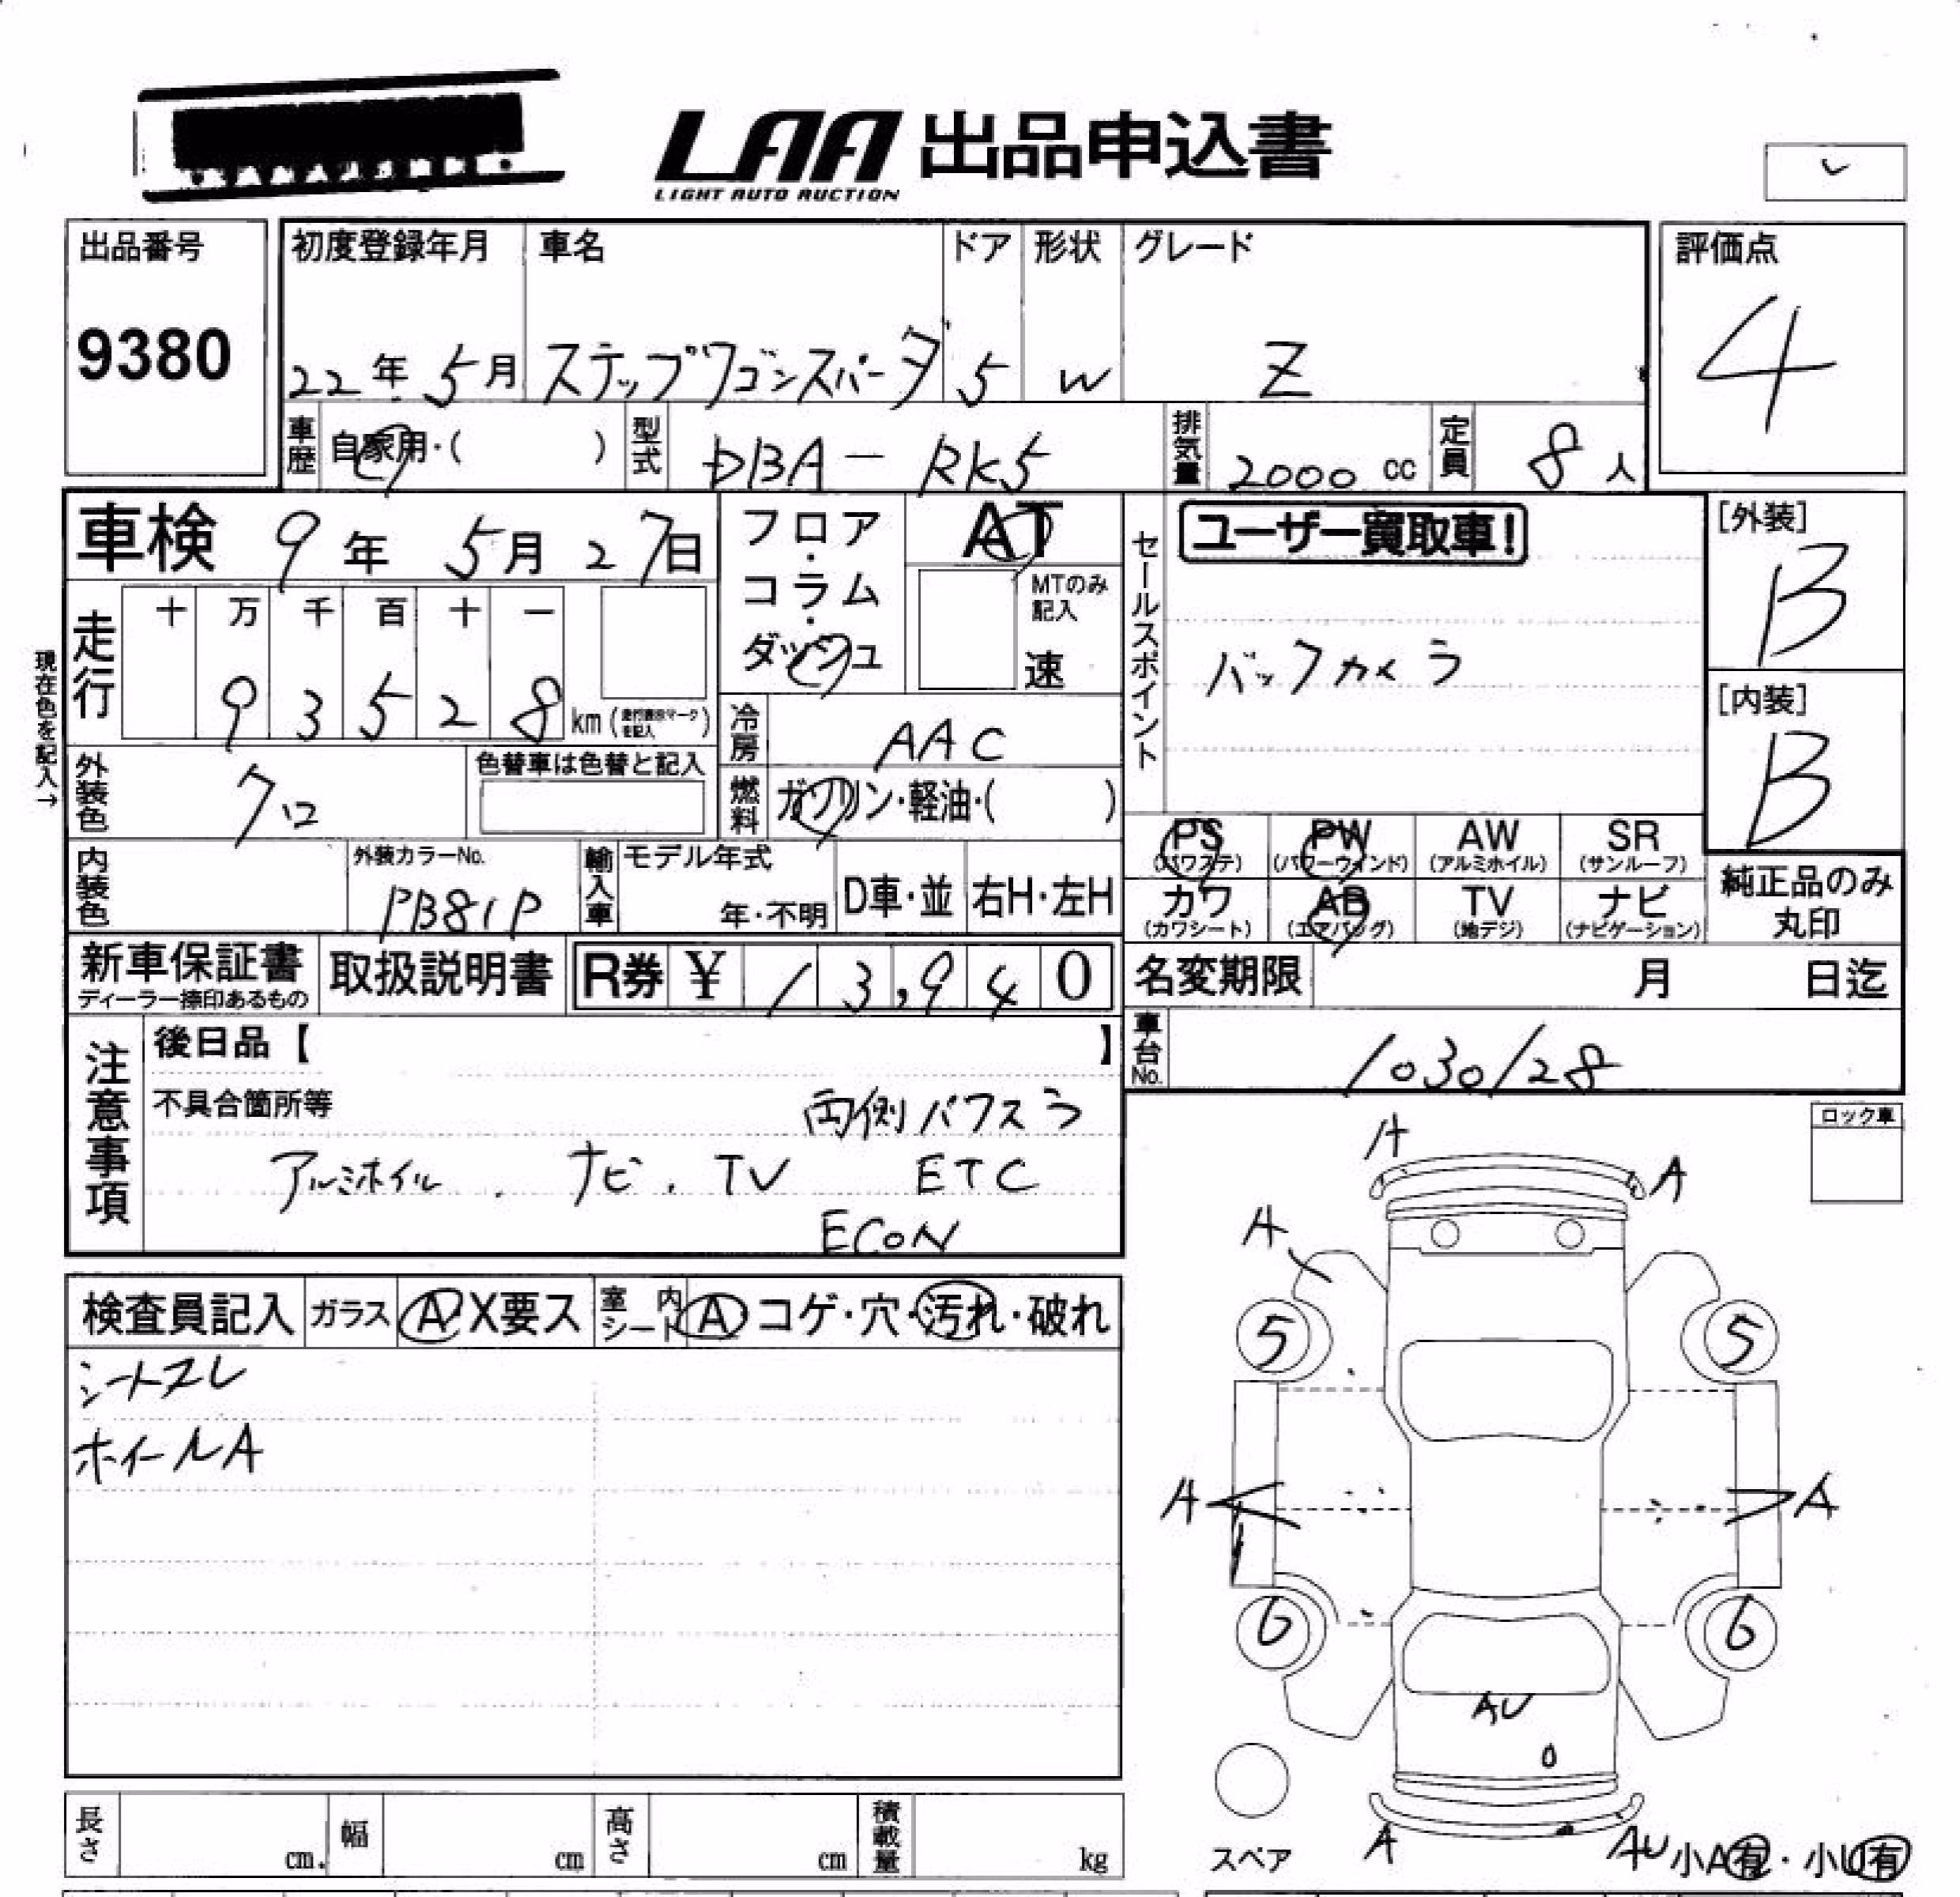 LAA 出品申込書
LIGHT AUTO AUCTION
出品番号 初度登録年月 車名 ドア 形状 グレード 評価点
9380 22年5月 ステップワゴンスパーダ 5 W Z 4
車歴 自家用・( ) 型式 DBA-RK5 排気量 2000 cc 定員 8人
車検 9年5月27日 フロア・コラム・ダッシュ AT セールスポイント ユーザー買取車! [外装] B
MTのみ記入 速
走行 十 万 千 百 十 一
9 3 5 2 8 km ( ) バックカメラ [内装] B
現在色を記入→
冷房 AAC
外装色 クロ 色替車は色替と記入 燃料 ガソリン・軽油・( )
PS (パワステ) PW (パワーウィンド) AW (アルミホイル) SR (サンルーフ)
内装色 外装カラーNo. PB81P 輸入車 モデル年式 年・不明 D車・並 右H・左H
カワ (カワシート) AB (エアバッグ) TV (地デジ) ナビ (ナビゲーション) 純正品のみ丸印
新車保証書 ディーラー捺印あるもの 取扱説明書 R券 ¥ 13,940 名変期限 月 日迄
注意事項 後日品【 】 車台No. 1030128
不具合箇所等 両側パワスラ
アルミホイル . ナビ . TV ETC
ECON
ロック車
検査員記入 ガラス A・X要ス 室内シート A コゲ・穴・汚れ・破れ
シートスレ
ホイールA
A
A
A
5 5
A A
6 6
AU
スペア A AU 小A有・小U有
長さ cm. 幅 cm 高さ cm 積載量 kg